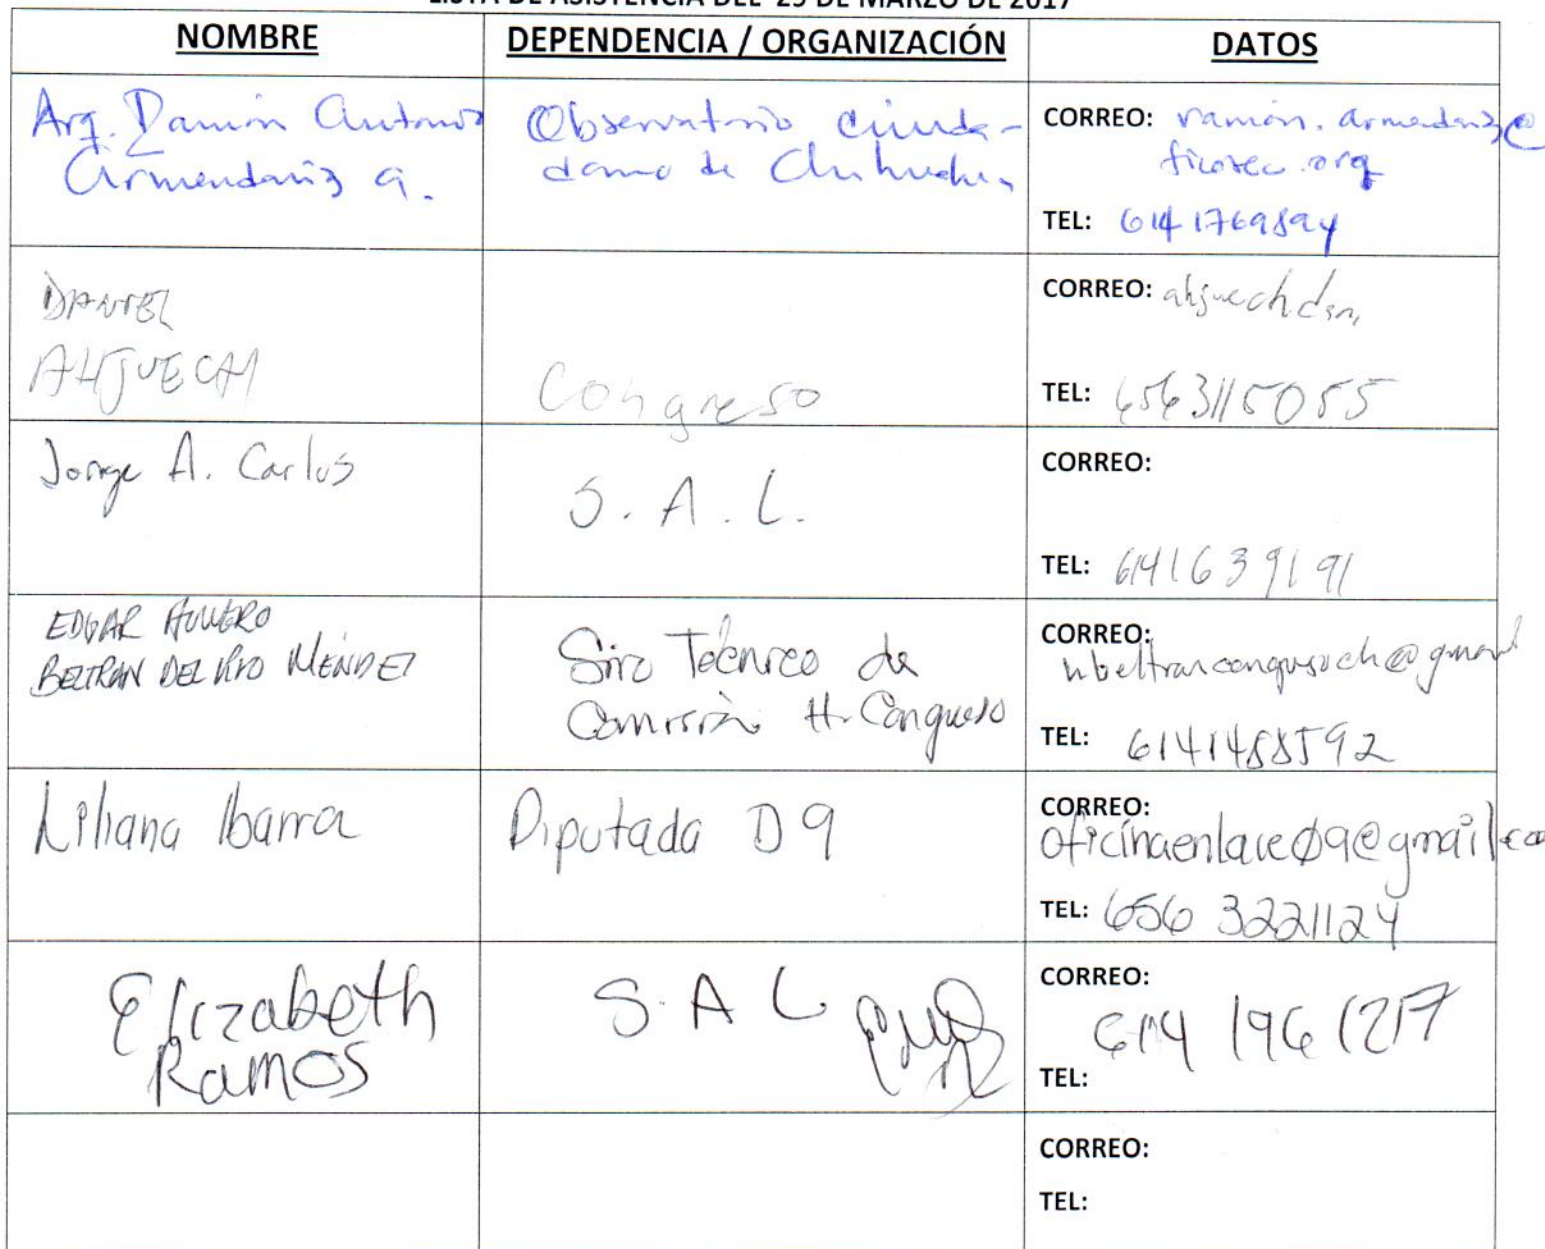 LISTA DE ASISTENCIA DEL 29 DE MARZO DE 2017
NOMBRE DEPENDENCIA / ORGANIZACIÓN DATOS
Arq. Ramón Antonio
Armendariz a.
Observatorio Ciuda-
dano de Chihuahua
CORREO: ramón.armendariz@
ficosec.org
TEL: 6141769894
DANIEL
AHJUECH
Congreso
CORREO:
TEL: 6563115055
Jorge A. Carlos
S.A.L.
CORREO:
TEL: 6141639191
EDGAR
BELTRAN DEL RIO MENDEZ
Srio Técnico de
Comisión H. Congreso
CORREO:
TEL: 6141488592
Liliana Ibarra
Diputada D9
CORREO:
oficinaenlace09@gmail.co
TEL: 656 3221124
Elizabeth
Ramos
S.A L
CORREO:
614 196 1217
TEL:
CORREO:
TEL: